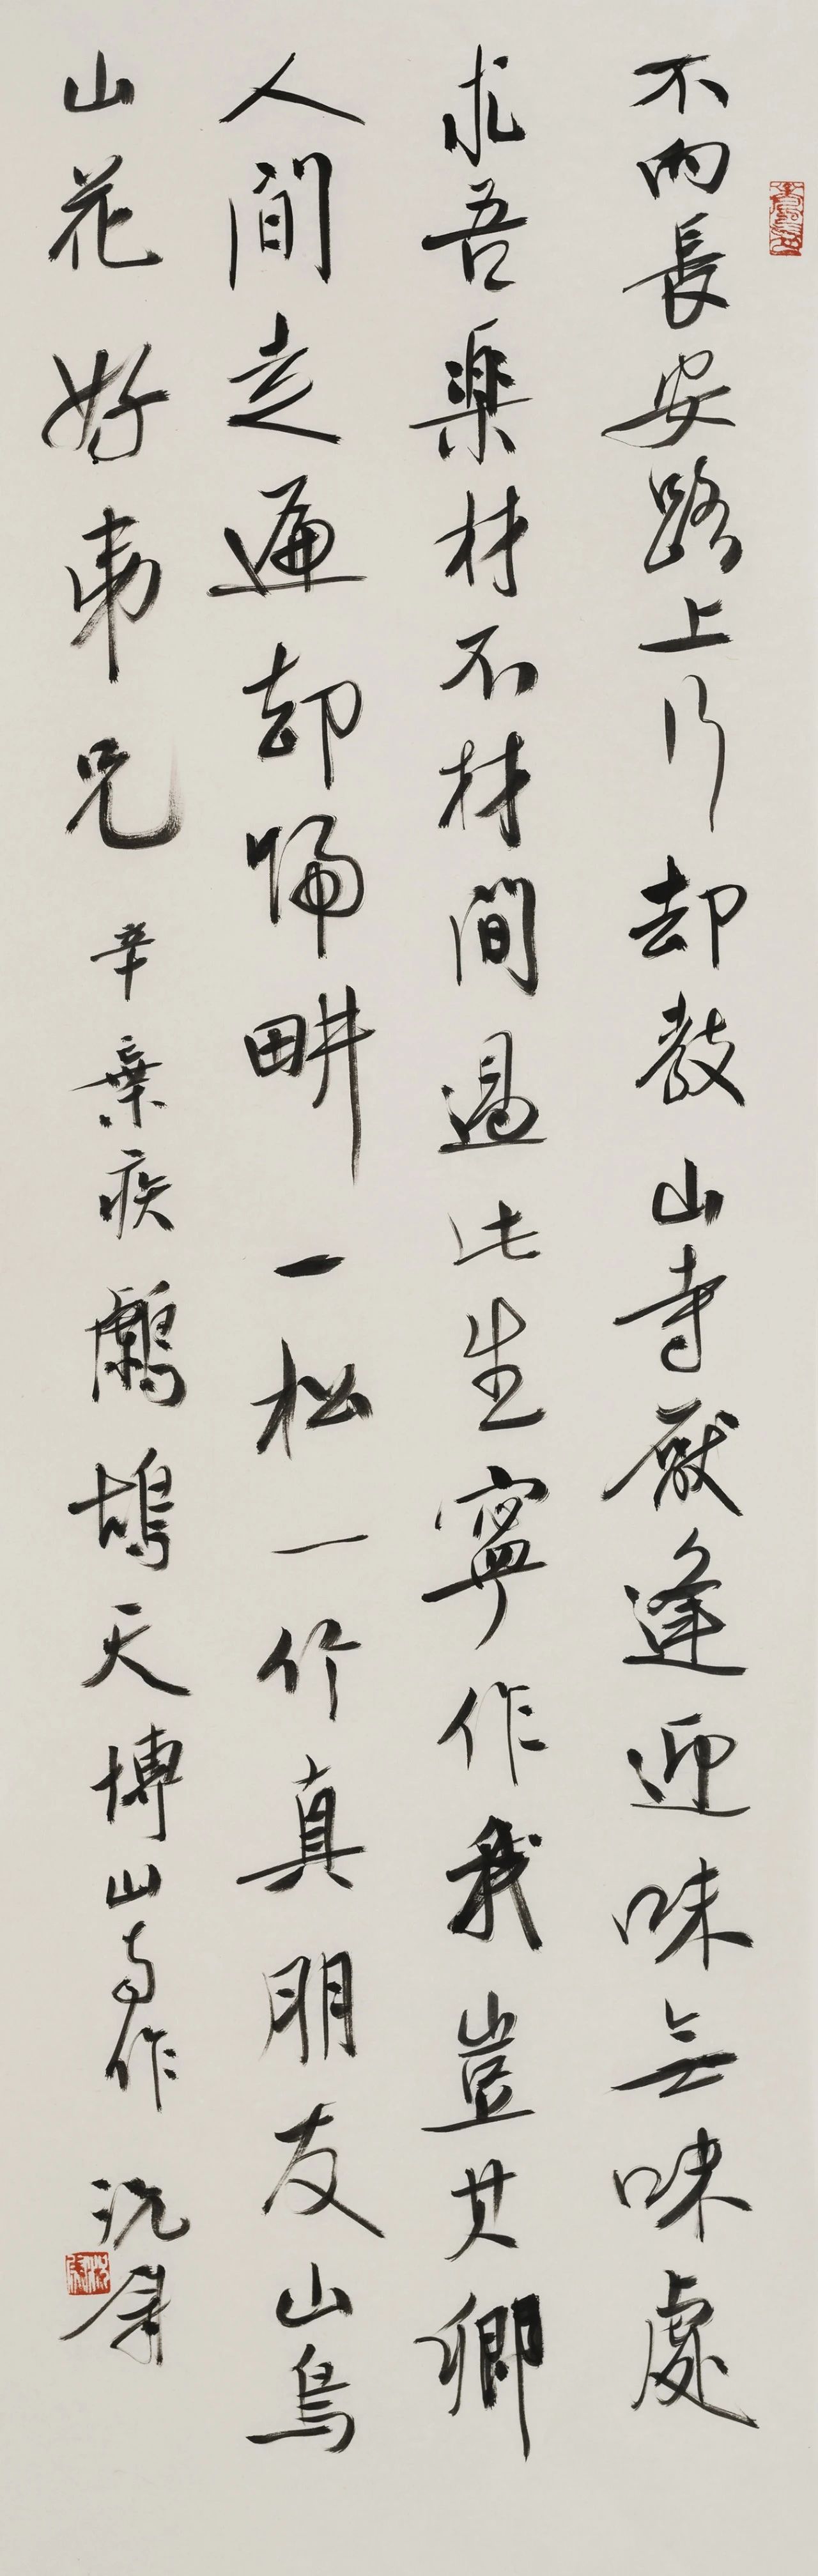 不向長安路上行却教山寺厭逢迎味無味處
求吾楽材不材間過此生寧作我豈其卿
人間走遍却歸畊一松一竹真朋友山鳥
山花好弟兄 辛棄疾鷓鴣天博山寺作 沈